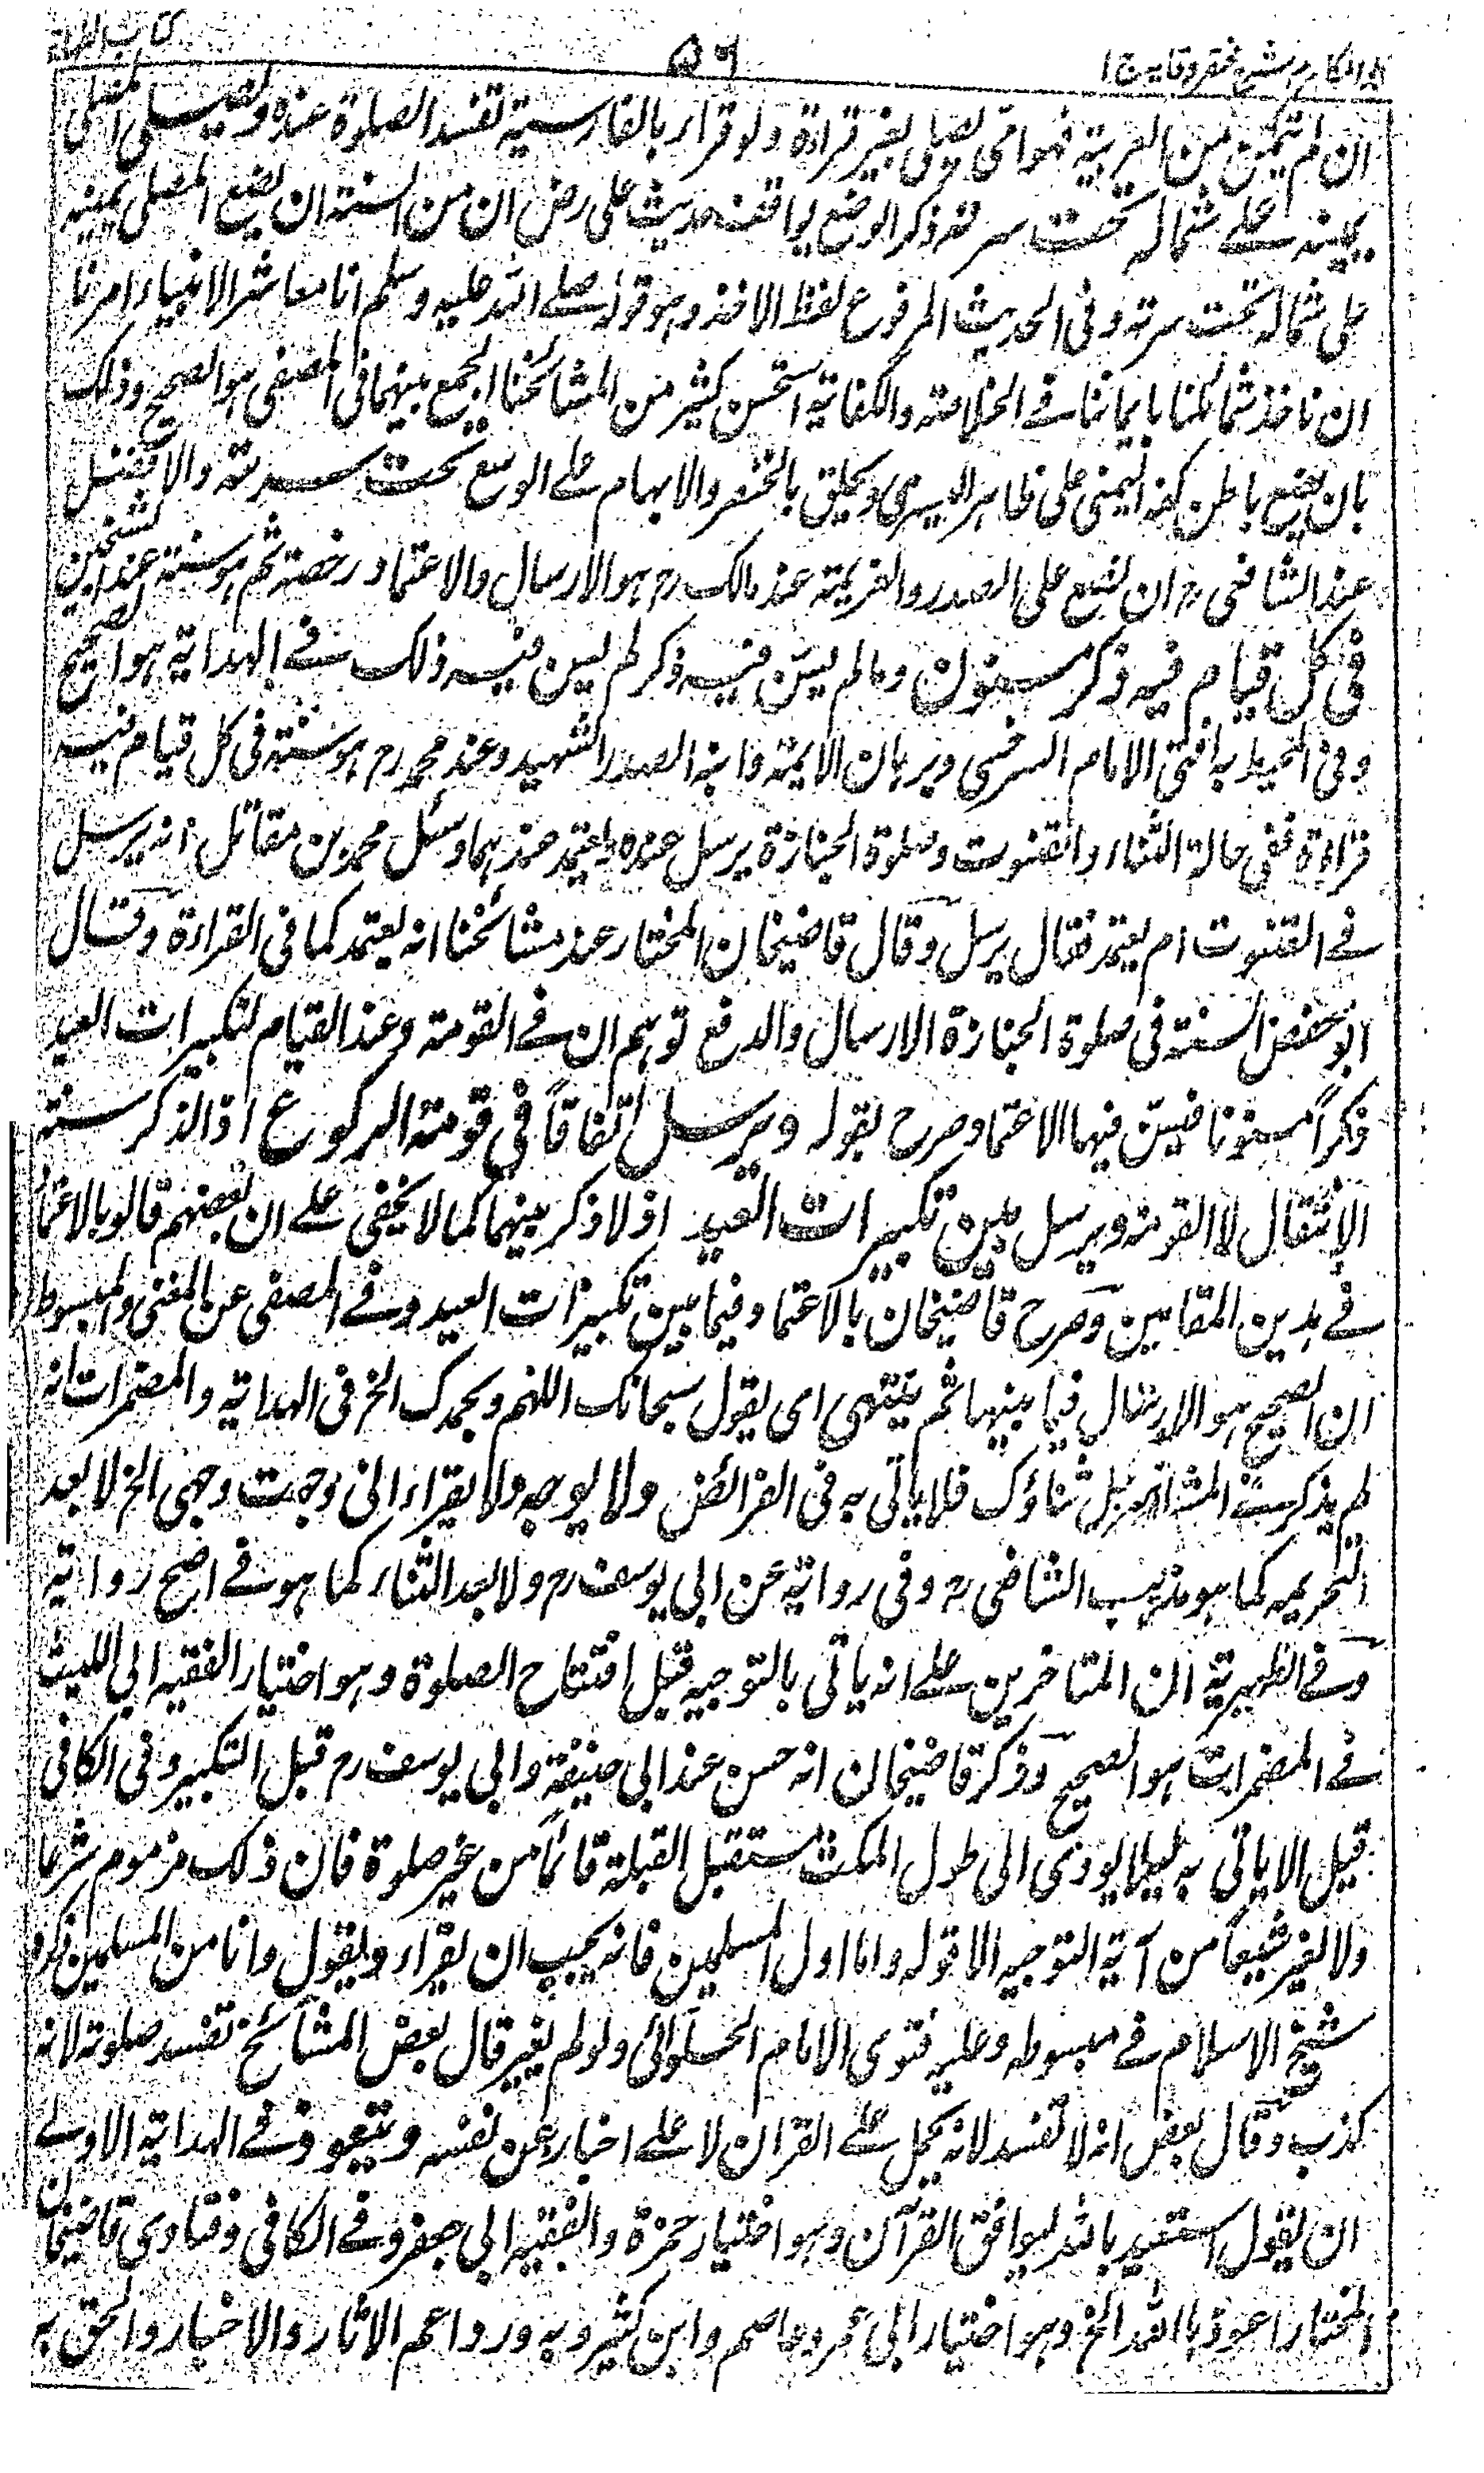 ابو المکارم شرح مختصر وقایہ ج ۱ ۵۶ کتاب الصلوٰۃ
ان لم یتمکن من العربیة فهو امی یصلی بغیر قراءة ولو قرار بالفارسیة تفسد الصلوة عنده ویضع المصلی
یمینه علے شماله تحت سرته ذکر الوضع لیوافق حدیث علی رض ان من السنة ان یضع المصلی یمینه
علی شماله تحت سرته وفی الحدیث المرفوع لفظ الاخذ وهو قوله صلے الله علیه وسلم انا معاشر الانبیاء امرنا
ان ناخذ شمائلنا بایماننا فے الخلاصة والکفایة استحسن کثیر من المشائخنا الجمع بینهما فی المصفی هو الصحیح وذلک
بان یضع باطن کفه الیمنی علی ظاهر الیسری ویحلق بالخنصر والابهام علے الوسع تحت سرته والافضل
عند الشافعی رح ان یضع علی الصدر والعزیمة عند مالک رح هو الارسال والاعتماد رخصة ثم هو سنة عند الشیخین
فی کل قیام فیه ذکر مسنون ومالم یسن فیه ذکر لم یسن فیه ذلک فے الهدایة هو الصحیح
وفی المحیط به افتی الامام السرخسی وبرهان الایمة وابنه الصدر الشهید وعند محمد رح هو سنة فی کل قیام فیه
قراءة ففی حالة الثناء والقنوت وصلوة الجنازة یرسل عنده ویعتمد عندهما وسئل محمد بن مقاتل انه یرسل
فے القنوت ام یعتمد فقال یرسل وقال قاضیخان المختار عند مشائخنا انه یعتمد کما فی القراءة وقال
ابو حفص السنة فی صلوة الجنازة الارسال والدفع توهم ان فے القومة وعند القیام لتکبیرات العید
ذکراً مسنونا فیسن فیهما الاعتماد صرح بقوله ویرسل اتفاقاً فی قومة الرکوع اذ الذکر سنة
الانتقال لا القومة ویرسل بین تکبیرات العید اذ لا ذکر بینهما کما لا یخفی علے ان بعضهم قالو بالاعتماد
فے هذین المقامین وصرح قاضیخان بالاعتماد فیما بین تکبیرات العید وفے المصفی عن المغنی والمبسوط
ان الصحیح هو الارسال فیما بینها ثم یثنی ای یقول سبحانک اللهم وبحمدک الخ فی الهدایة والمضمرات انه
لم یذکر فے المشاهیر جل ثناؤک فلا یاتی به فی الفرائض ولا یوجه ولا یقراء انی وجهت وجهی الخ لا بعد
التحریمه کما هو مذهب الشافعی رح وفی روایة عن ابی یوسف رح ولا بعد الثناء کما هو فے اصح روایة
وفے الظهیریة ان المتاخرین علے انه یاتی بالتوجیه قبل افتتاح الصلوة وهو اختیار الفقیه ابی اللیث
فے المضمرات هو الصحیح وذکر قاضیخان انه حسن عند ابی حنیفة وابی یوسف رح قبل التکبیر وفی الکافی
قیل الا یاتی به لیلا یودی الی طول المکث مستقبل القبلة قائماً من غیر صلوة فان ذلک مذموم شرعا
ولا یغیر شیئا من آیة التوجیه الا قوله وانا اول المسلمین فانه یجب ان یقرار ویقول وانا من المسلمین ذکره
شیخ الاسلام فے مبسوطه وعلیه فتوی الامام الحلوائی ولو لم یغیر قال بعض المشائخ تفسد صلوته لانه
کذب وقال بعض انه لا تفسد لانه یحمل علے القران لا علے اخباره عن نفسه ویتعوذ فے الهدایة الاولے
ان یقول استعیذ بالله لیوافق القرآن وهو اختیار حمزة والفقیه ابی جعفر وفے الکافی وفتاوی قاضیخان
المختار اعوذ بالله الخ وهو اختیار ابی عمرو عاصم وابن کثیر وبه ورد اعم الاثار والاخبار والحق به